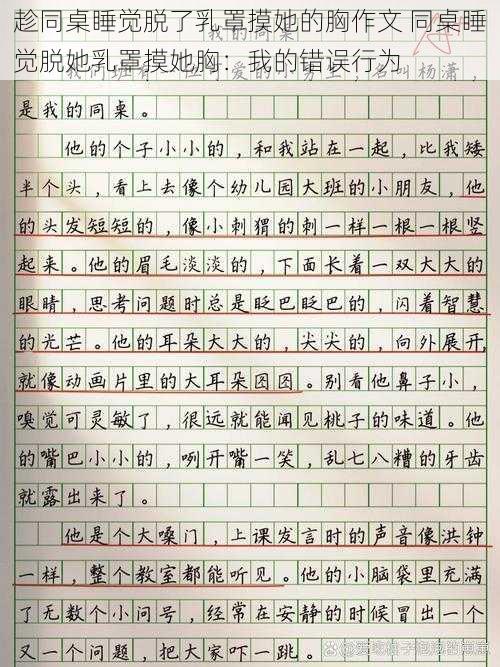 趁同桌睡觉脱了乳罩摸她的胸作文 同桌睡
觉脱她乳罩摸她胸：我的错误行为
我的同桌
名叫杨潇，
是我的同桌。
他的个子小小的，和我站在一起，比我矮
半个头，看上去像个幼儿园大班的小朋友，他
的头发短短的，像小刺猬的刺一样一根一根竖
起来。他的眉毛淡淡的，下面长着一双大大的
眼睛，思考问题时总是眨巴眨巴的，闪着智慧
的光芒。他的耳朵大大的，尖尖的，向外展开，
就像动画片里的大耳朵图图。别看他鼻子小，
嗅觉可灵敏了，很远就能闻见桃子的味道。他
的嘴巴小小的，咧开嘴一笑，乱七八糟的牙齿
就露出来了。
他是个大嗓门，上课发言时的声音像洪钟
一样，整个教室都能听见。他的小脑袋里充满
了无数个小问号，经常在安静的时候冒出一个
又一个问题，把大家吓一跳。